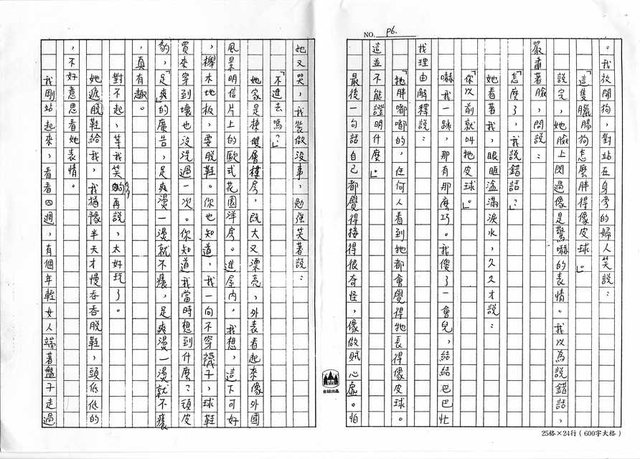 NO. P6.
。我放開狗，對站在身旁的婦人笑說：
「這隻臘腸狗怎麼胖得像皮球。」
說完，她臉上閃過像是驚嚇的表情。我以為說錯話，
嚴肅著臉，問說：
「怎麼了，我說錯話？」
她看著我，眼眶溢滿淚水，久久才說：
「你以前就叫牠皮球。」
嚇我一跳，那有那麼巧。我傻了一會兒，結結巴巴忙
找理由解釋說：
「牠胖嘟嘟的，任何人看到牠都會覺得牠長得像皮球。
這並不能證明什麼。」
最後一句話自己都覺得接得很奇怪，像做賊心虛。怕
她又笑，我裝做沒事，勉強笑著說：
「不進去嗎？」
她家是棟雙層樓房，既大又漂亮，外表看起來像外國
風景明信片上的歐式花園洋房。進屋內，我想，這下可好
，檜木地板，要脫鞋。你也知道，我一向不穿襪子，球鞋
買來穿到壞也沒洗過一次。你知道我當時想到什麼？頭皮
豹，「足爽」的廣告，足爽燙一燙就不癢，足爽燙一燙就不癢
，真有趣。
對不起，等我笑夠再說，太好玩了。
她遞脫鞋給我，我猶豫半天才慢吞吞脫鞋，頭低低的
，不好意思看她表情。
我剛站起來，看看四週，有個年輕女人端著盤子走過
25格×24行（600字大格）